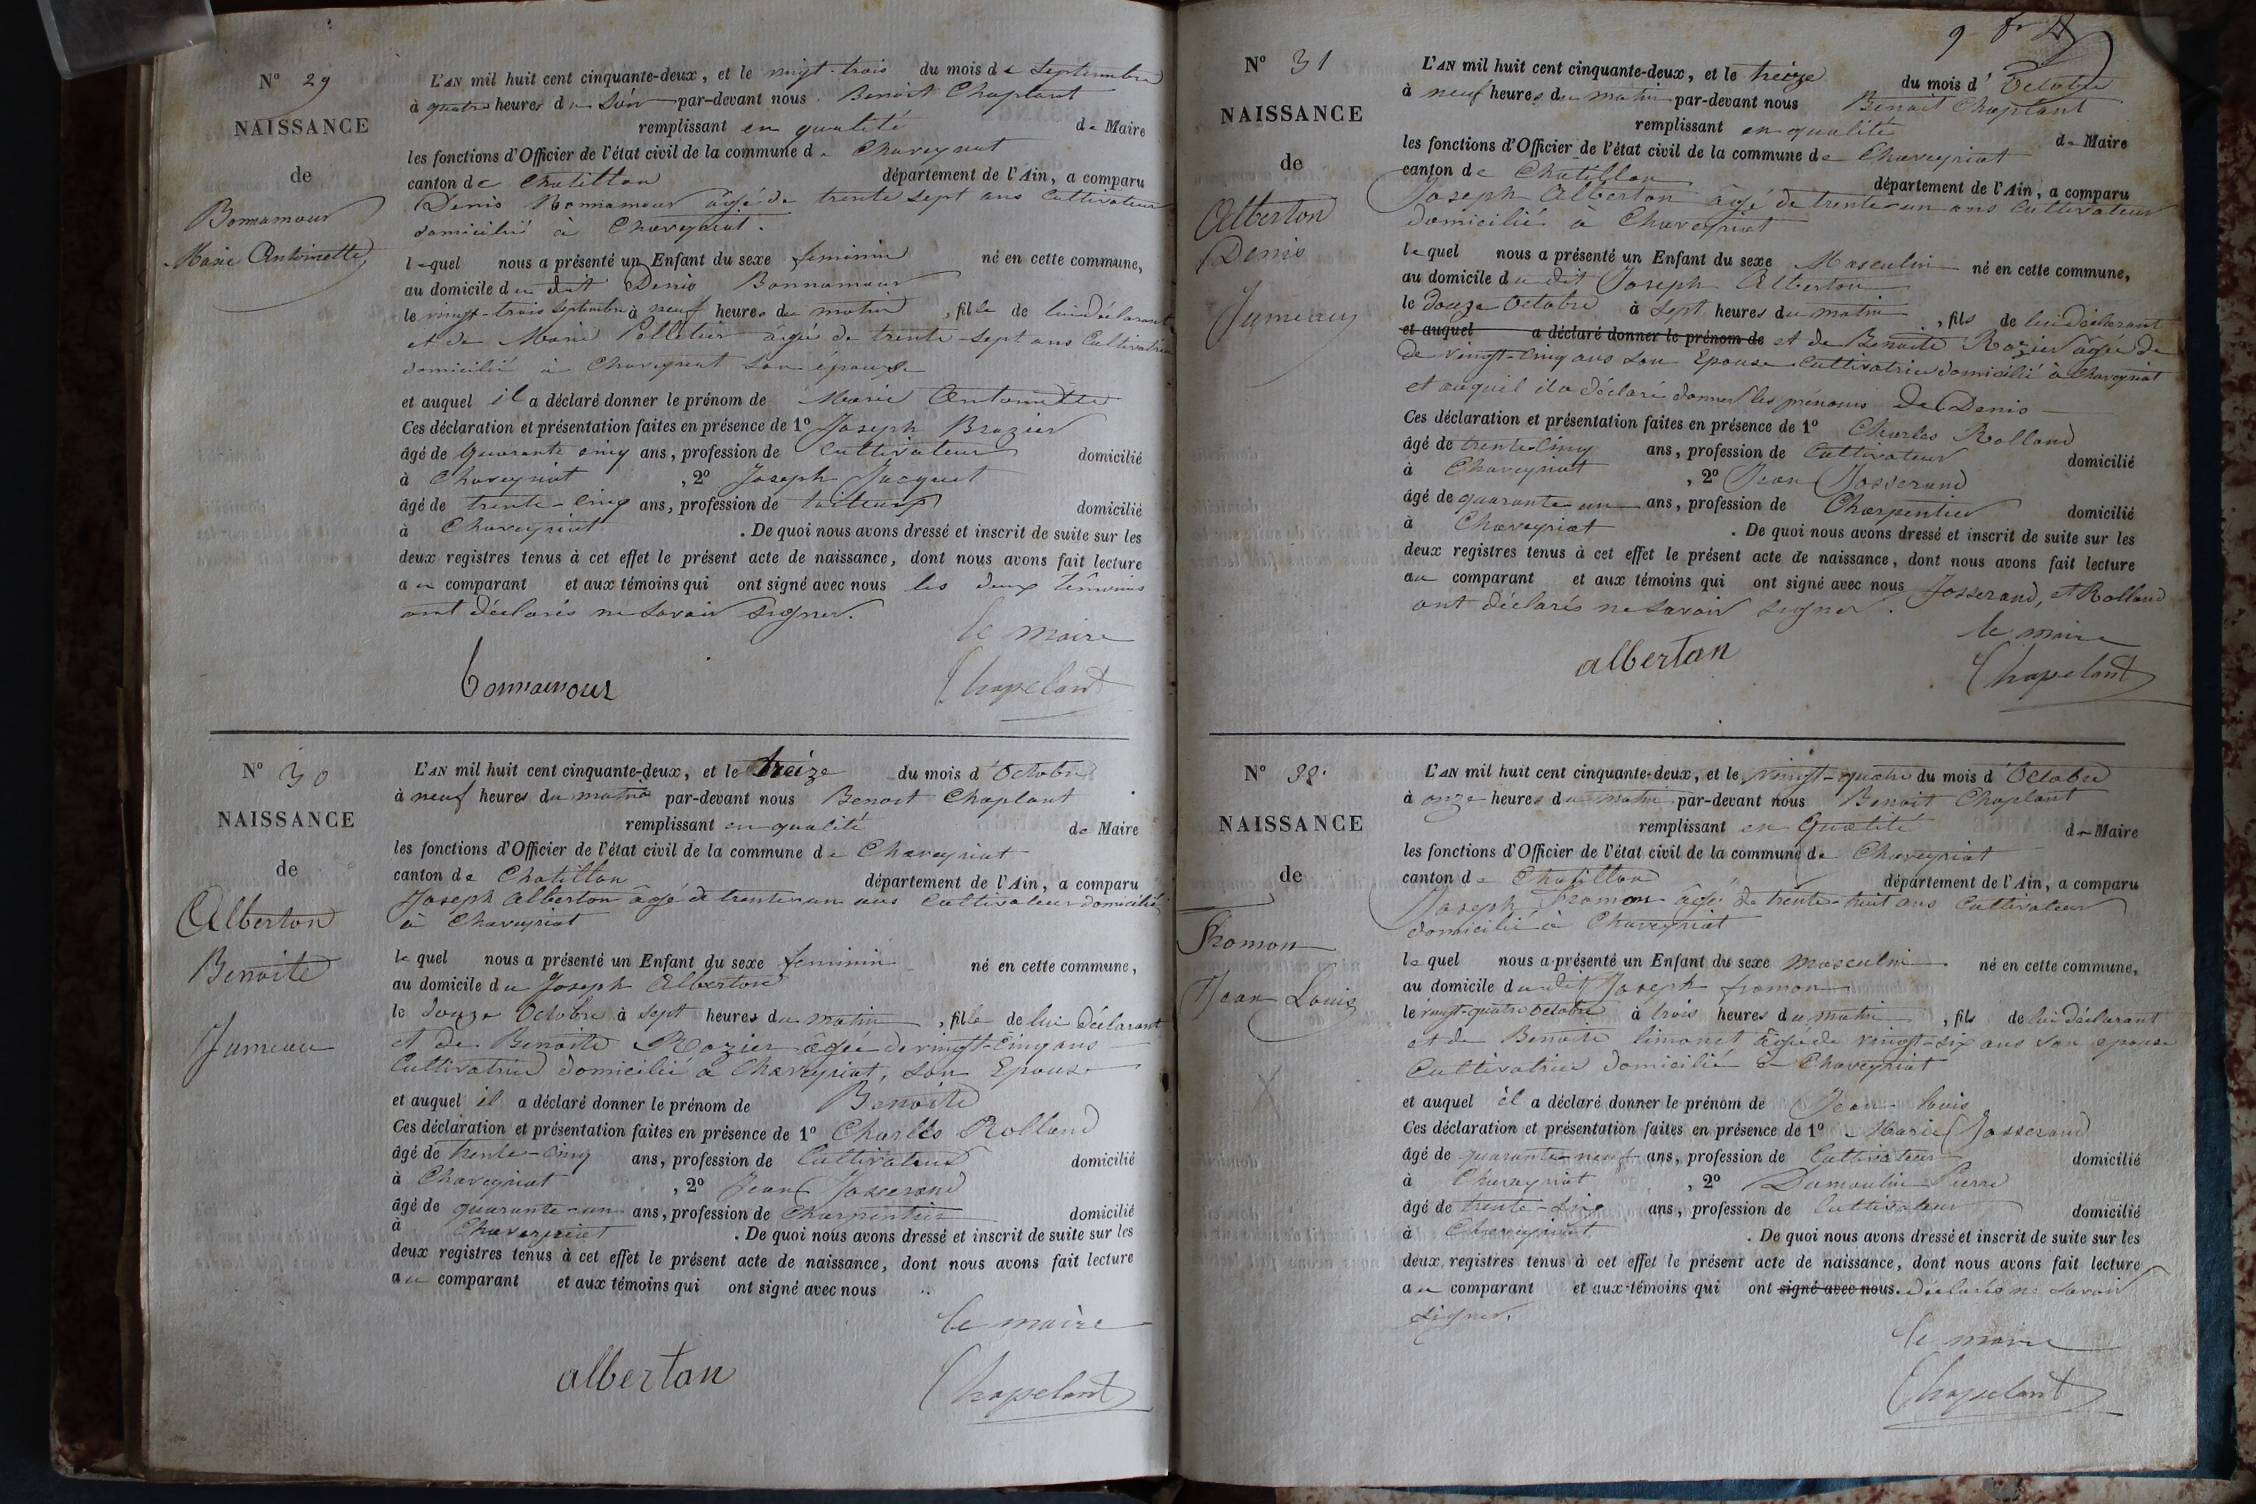 N° 29
NAISSANCE
de
Bonnamour
Marie Antoinette
L'AN mil huit cent cinquante-deux, et le vingt-trois du mois de Septembre
à quatre heures du Soir par-devant nous Benoit Chaplant
remplissant en qualité de Maire
les fonctions d'Officier de l'état civil de la commune de Chaveyriat
canton de Chatillon département de l'Ain, a comparu
Denis Bonnamour âgé de trente sept ans Cultivateur
domicilié à Chaveyriat.
lequel nous a présenté un Enfant du sexe feminin né en cette commune,
au domicile du dit Denis Bonnamour
le vingt-trois Septembre à neuf heures du matin, fille de lui Déclarant
et de Marie Pelletier âgée de trente-sept ans Cultivatrice
domicilié à Chaveyriat son épouse
et auquel il a déclaré donner le prénom de Marie Antoinette
Ces déclaration et présentation faites en présence de 1° Joseph Brazier
âgé de Quarante cinq ans, profession de Cultivateur domicilié
à Chaveyriat, 2° Joseph Jacquet
âgé de trente-cinq ans, profession de tailleur domicilié
à Chaveyriat. De quoi nous avons dressé et inscrit de suite sur les
deux registres tenus à cet effet le présent acte de naissance, dont nous avons fait lecture
au comparant et aux témoins qui ont signé avec nous les deux témoins
ont déclarés ne savoir signer.
le maire
bonnamour
Chapelant
N° 30
NAISSANCE
de
Alberton
Benoite
Jumeau
L'AN mil huit cent cinquante-deux, et le treize du mois d'Octobre
à neuf heures du matin par-devant nous Benoit Chaplant
remplissant en qualité de Maire
les fonctions d'Officier de l'état civil de la commune de Chaveyriat
canton de Chatillon département de l'Ain, a comparu
Joseph Alberton âgé de trente un ans Cultivateur domicilié
à Chaveyriat
lequel nous a présenté un Enfant du sexe feminin né en cette commune,
au domicile du Joseph Alberton
le douze Octobre à sept heures du matin, fille de lui déclarant
et de Benoite Rozier agée de vingt-cinq ans
Cultivatrice domicilié à Chaveyriat, son Epouse
et auquel il a déclaré donner le prénom de Benoite
Ces déclaration et présentation faites en présence de 1° Charles Rolland
âgé de trente-cinq ans, profession de Cultivateur domicilié
à Chaveyriat, 2° Jean Josserand
âgé de quarante-un ans, profession de Charpentier domicilié
à Chaveyriat. De quoi nous avons dressé et inscrit de suite sur les
deux registres tenus à cet effet le présent acte de naissance, dont nous avons fait lecture
au comparant et aux témoins qui ont signé avec nous
le maire
albertan
Chapelant
9
N° 31
NAISSANCE
de
Alberton
Denis
Jumeau
L'AN mil huit cent cinquante-deux, et le treize du mois d'Octobre
à neuf heures du matin par-devant nous Benoit Chaplant
remplissant en qualité de Maire
les fonctions d'Officier de l'état civil de la commune de Chaveyriat
canton de Chatillon département de l'Ain, a comparu
Joseph Alberton âgé de trente un ans Cultivateur
domicilié à Chaveyriat
lequel nous a présenté un Enfant du sexe Masculin né en cette commune,
au domicile du dit Joseph Alberton
le douze Octobre à sept heures du matin, fils de lui déclarant
et auquel a déclaré donner le prénom de et de Benoite Rozier âgée de
de vingt-cinq ans son Epouse Cultivatrice domicilié à Chaveyriat
et auquel il a déclaré donner les prénoms De Denis
Ces déclaration et présentation faites en présence de 1° Charles Rolland
âgé de trente cinq ans, profession de Cultivateur domicilié
à Chaveyriat, 2° Jean Josserand
âgé de quarante un ans, profession de Charpentier domicilié
à Chaveyriat. De quoi nous avons dressé et inscrit de suite sur les
deux registres tenus à cet effet le présent acte de naissance, dont nous avons fait lecture
au comparant et aux témoins qui ont signé avec nous Josserand, et Rolland
ont déclarés ne savoir signer.
le maire
albertan
Chapelant
N° 32
NAISSANCE
de
Fromon
Jean Louis
L'AN mil huit cent cinquante-deux, et le vingt-quatre du mois d'Octobre
à onze heures du matin par-devant nous Benoit Chaplant
remplissant en Qualité de Maire
les fonctions d'Officier de l'état civil de la commune de Chaveyriat
canton de Chatillon département de l'Ain, a comparu
Joseph Fromon âgé de trente-huit ans Cultivateur
domicilié à Chaveyriat
lequel nous a présenté un Enfant du sexe masculin né en cette commune,
au domicile du dit Joseph fromon
le vingt-quatre octobre à trois heures du matin, fils de lui déclarant
et de Benoite limonet âgée de vingt-six ans son epouse
Cultivatrice domicilié à Chaveyriat
et auquel il a déclaré donner le prénom de Jean Louis
Ces déclaration et présentation faites en présence de 1° Marie Josserand
âgé de quarante-neuf ans, profession de Cultivateur domicilié
à Chaveyriat, 2° Dumoulin Pierre
âgé de trente-six ans, profession de Cultivateur domicilié
à Chaveyriat. De quoi nous avons dressé et inscrit de suite sur les
deux registres tenus à cet effet le présent acte de naissance, dont nous avons fait lecture
au comparant et aux témoins qui ont signé avec nous. déclarés ne savoir
signer.
le maire
Chapelant